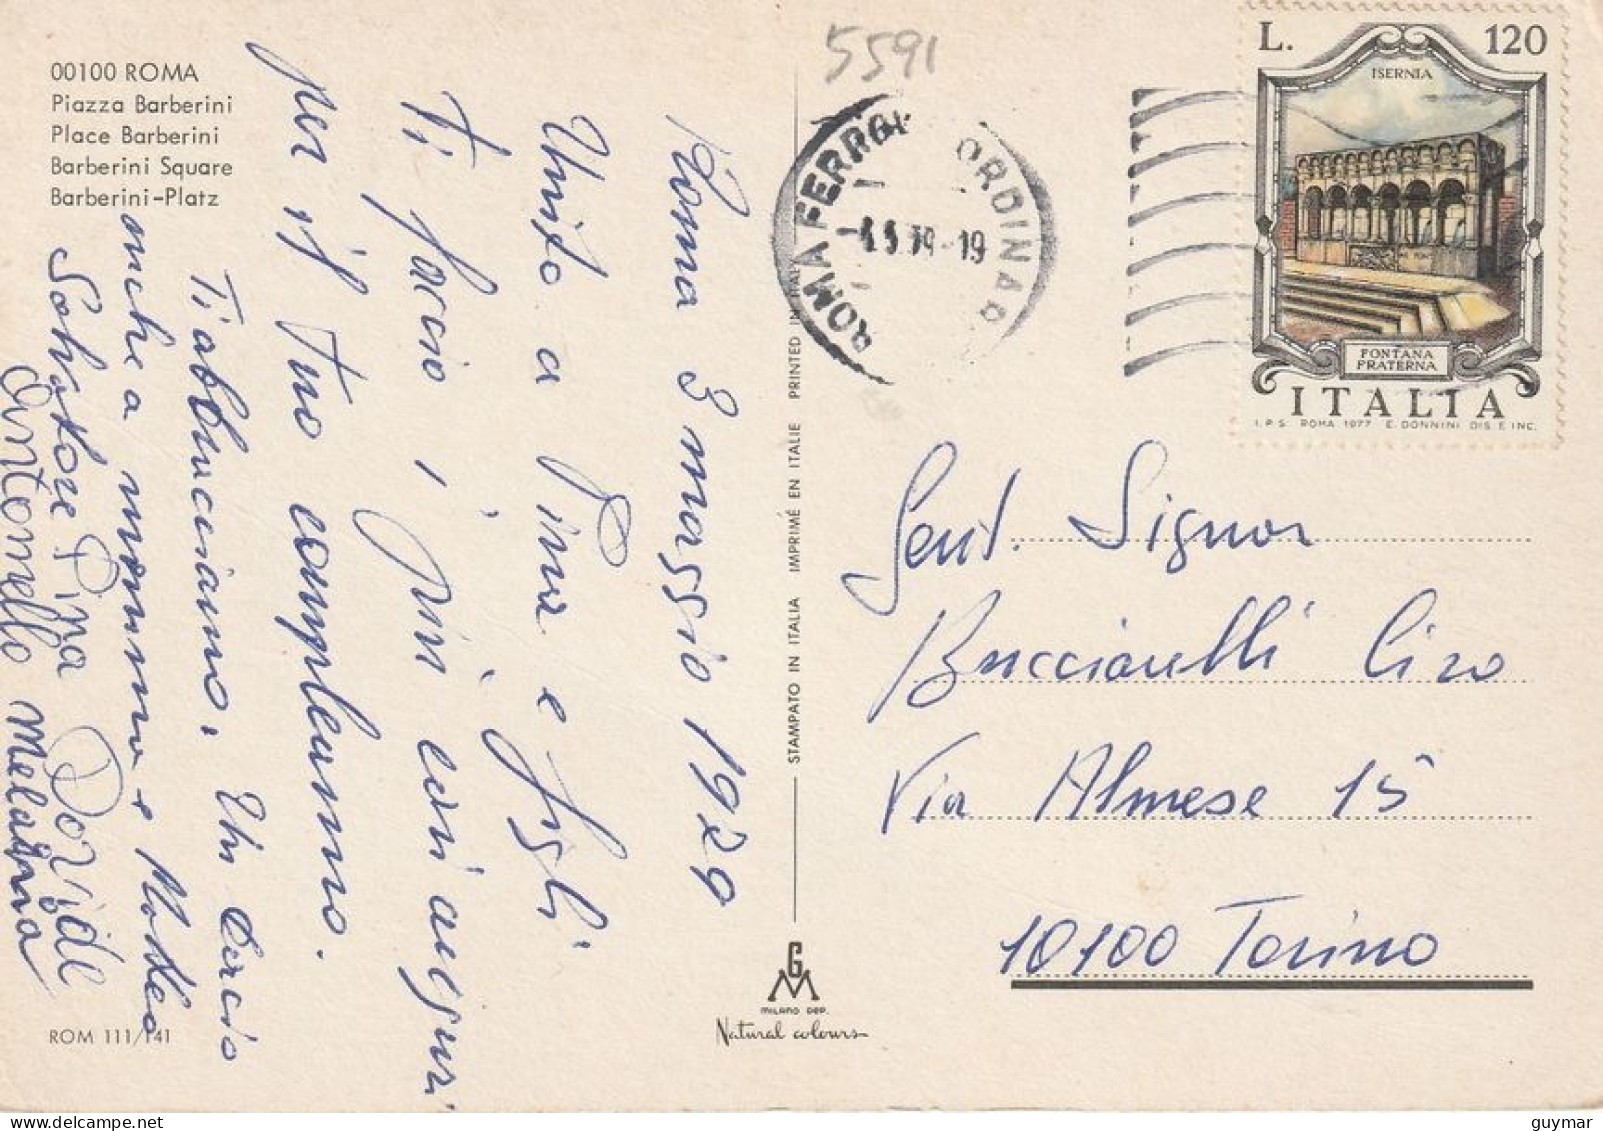 00100 ROMA
Piazza Barberini
Place Barberini
Barberini Square
Barberini-Platz
Roma 3 maggio 1979
Unito a Pina e figli
Ti faccio i più cari auguri
per il tuo compleanno.
Ti abbracciamo. Un bacio
anche a mamma e Matteo
Salvatore Pina Davide
Antonello Melania
ROM 111/141
STAMPATO IN ITALIA IMPRIMÉ EN ITALIE PRINTED IN ITALY
GM
MILANO DEP.
Natural colours
5591
ROMA FERROV ORDINAR
.5.79-19
L. 120
ISERNIA
FONTANA
FRATERNA
ITALIA
I.P.S. ROMA 1977 E. DONNINI DIS. E INC.
Gent. Signor
Bucciarelli Ciro
Via Almese 15
10100 Torino
guymar